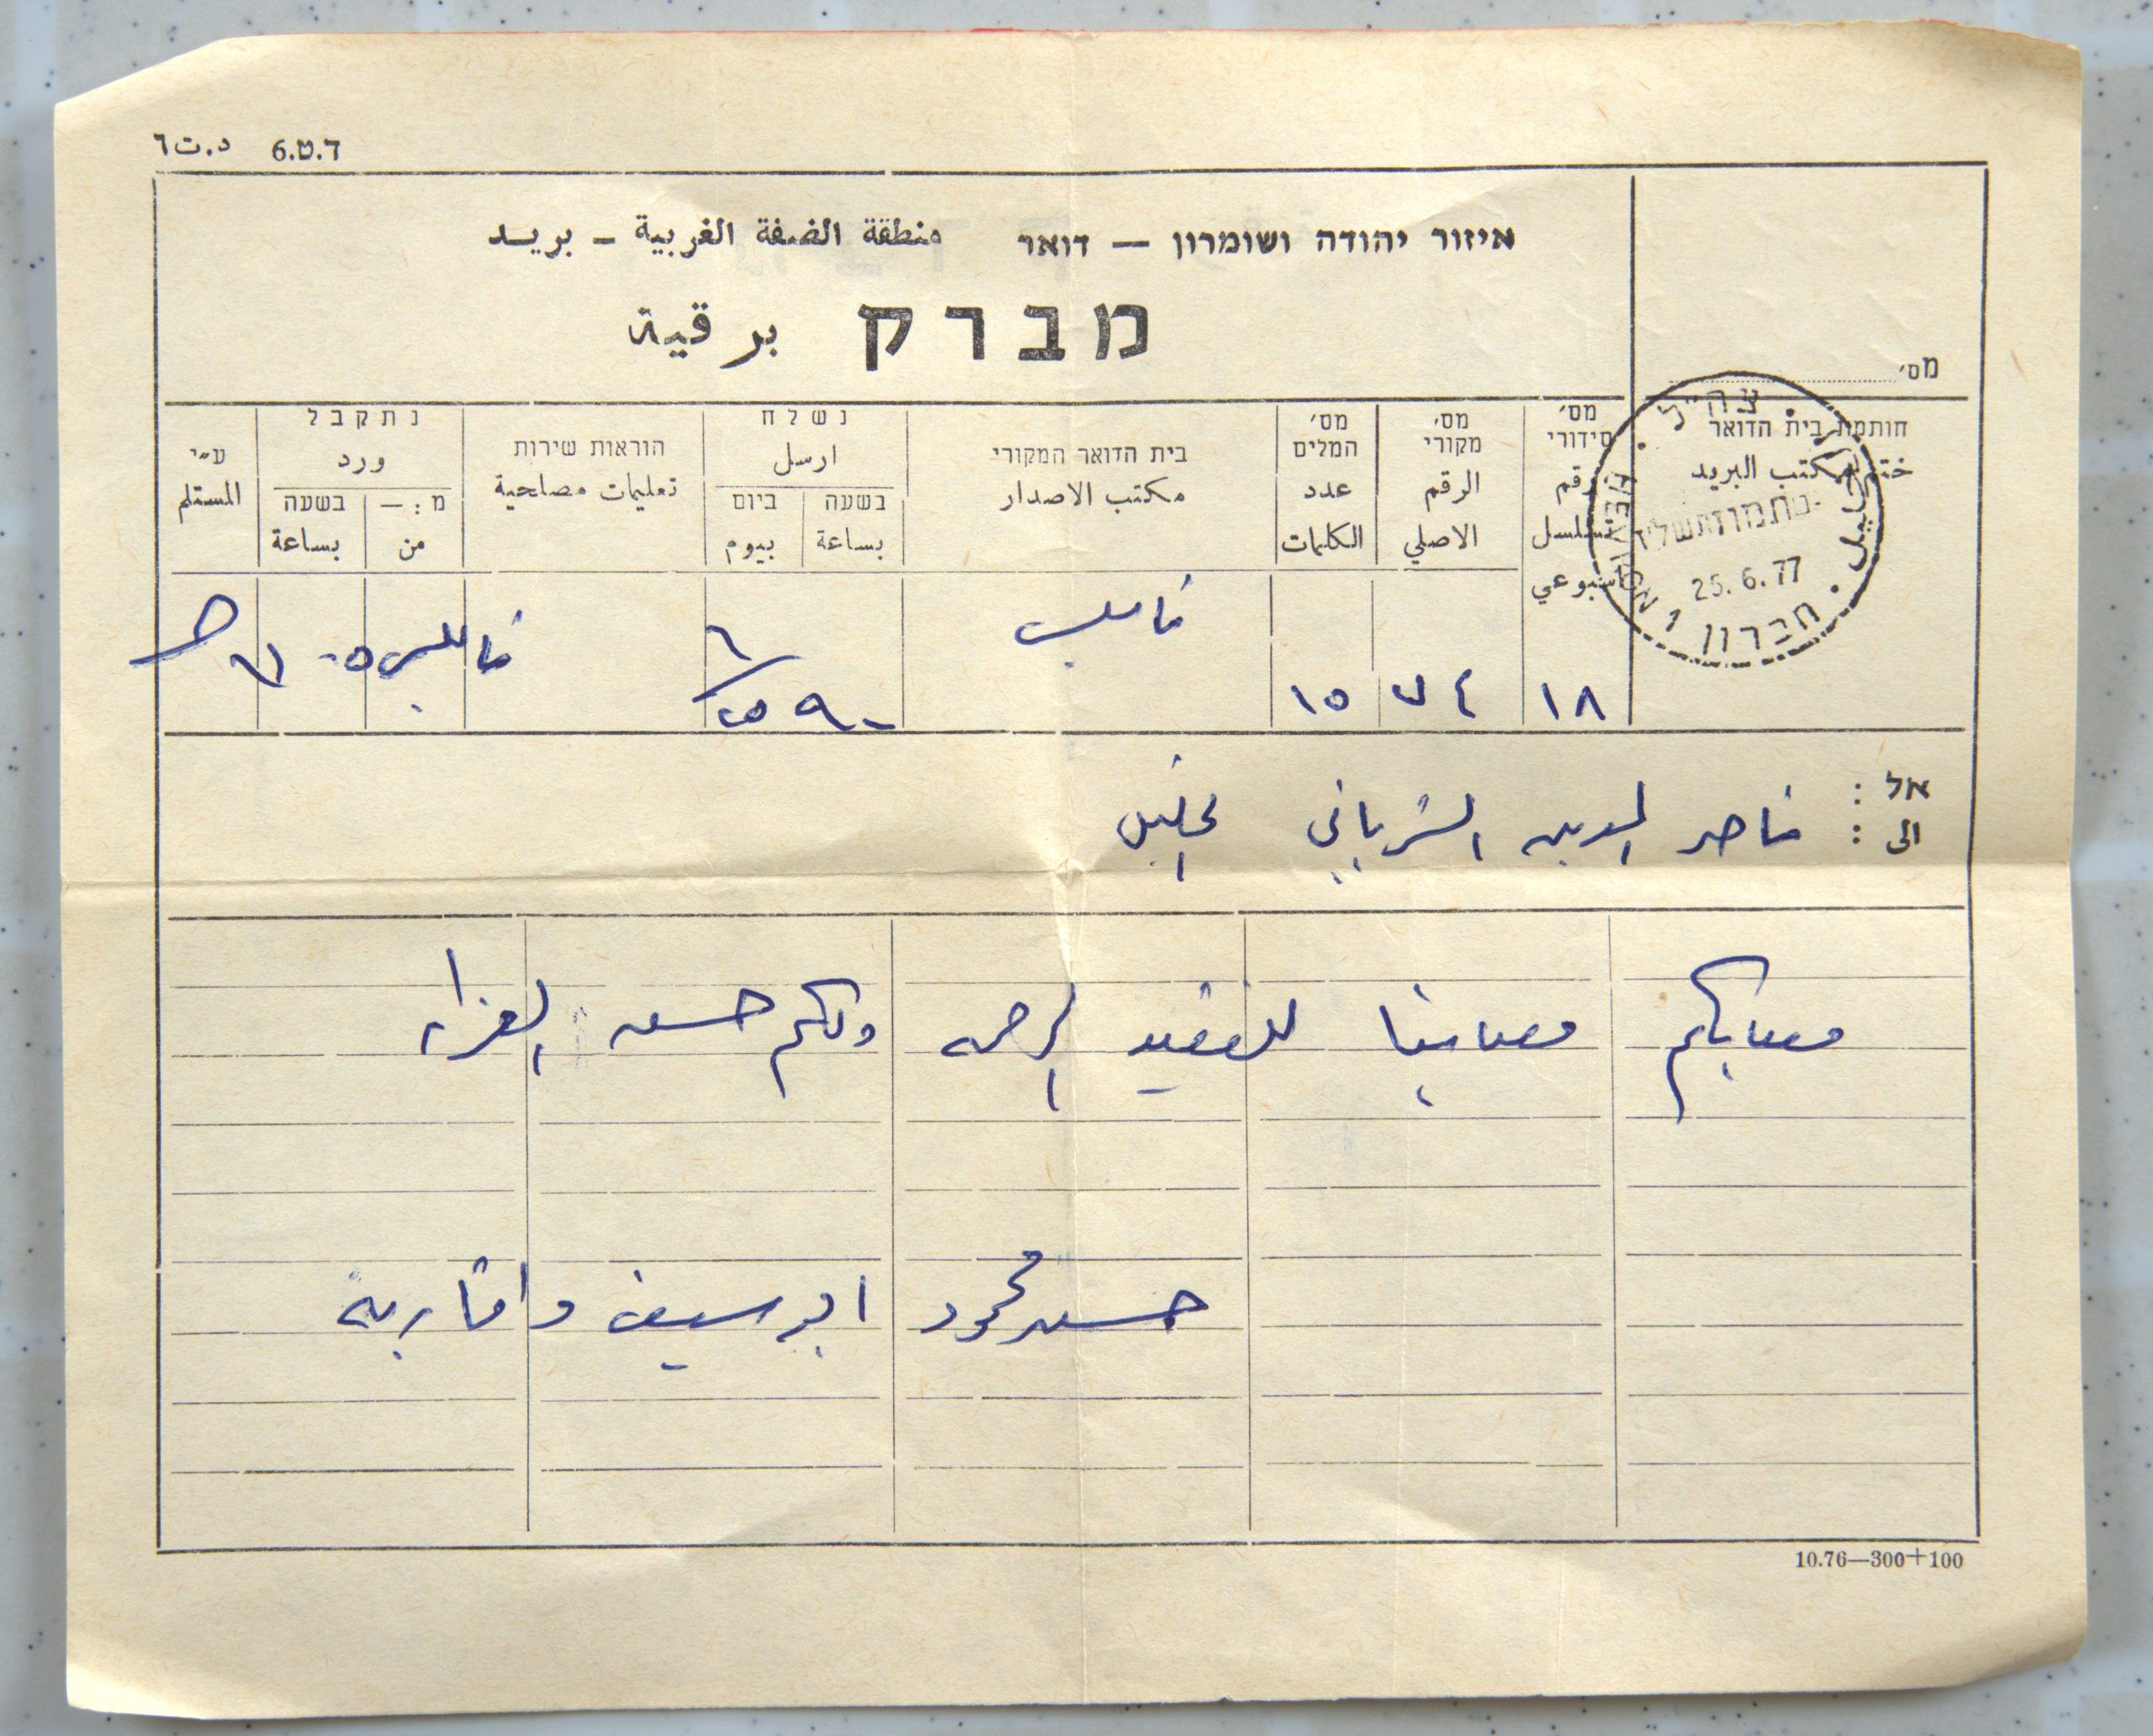 ד.ט.6 د.ت ٦
איזור יהודה ושומרון — דואר منطقة الضفة الغربية - بريد
מברק برقية
מס׳
חותמת בית הדואר
ختم مكتب البريد
מס׳ סידורי
رقم تسلسل اسبوعي
מס׳ מקורי
الرقم الاصلي
מס׳ המלים
عدد الكلمات
בית הדואר המקורי
مكتب الاصدار
נשלח
ارسل
בשעה ביום
بساعة بيوم
הוראות שירות
تعليمات مصلحية
נתקבל
ورد
מ : — בשעה
من بساعة
ע״י
المستلم
צה״ל
الخليل
חברון
HEBRON
25.6.77
١٨ ٧٤ ١٥ نابلس ٩٠٠ ٢٥/٦ نابلس
אל :
الى : ناصر الدين الشرباتي الخليل
مصابكم مصابنا للفقيد الرحمه ولكم حسن العزاء
حسن محمود ابو سيف واقاربه
10.76—300+100